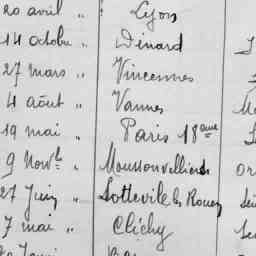 20 avril " Lyon
14 octobre " Dinard
27 mars " Vincennes
4 août " Vannes
19 mai " Paris 18eme
9 Novbre "
27 Juin " Sotteville ls Rouen
7 mai " Clichy